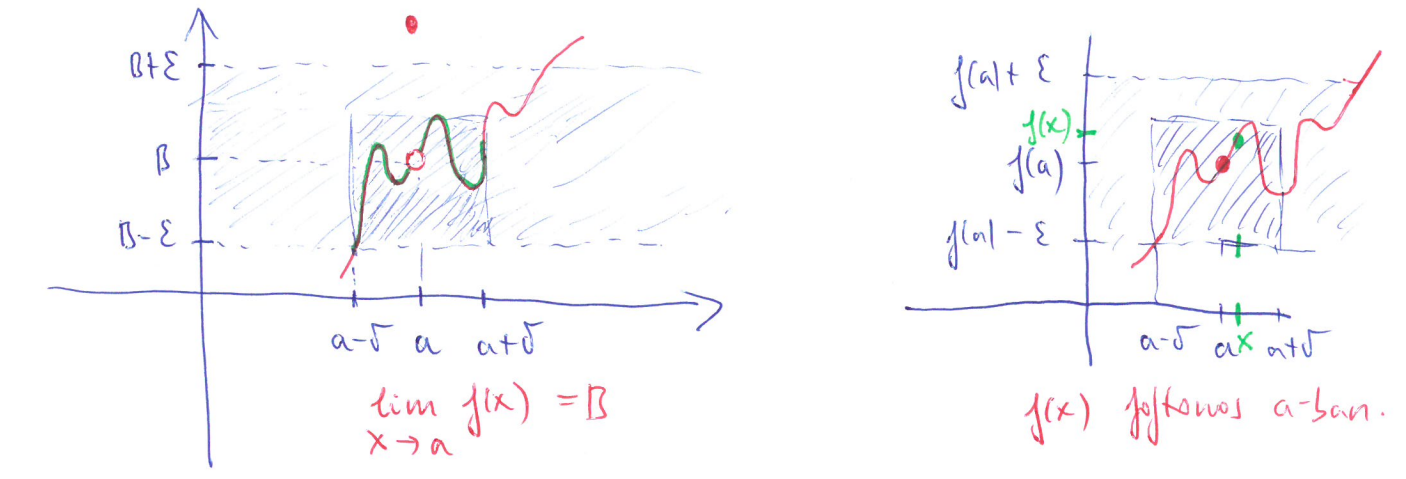 B+ε
B
B-ε
a-δ a a+δ
lim f(x) = B
x→a
f(a)+ ε
f(x)
f(a)
f(a)-ε
a-δ a x a+δ
f(x) folytonos a-ban.